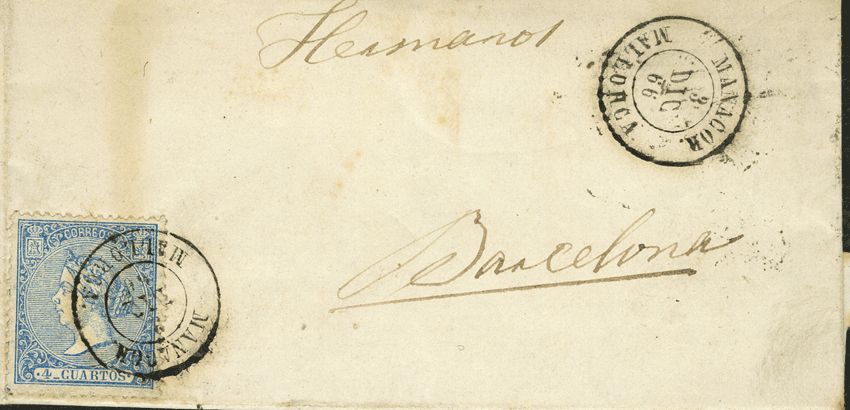 Hermanos
MANACOR.
3
DIC
66
MALLORCA
Barcelona
CORREOS
4_CUARTOS
MALLORCA
MANACOR